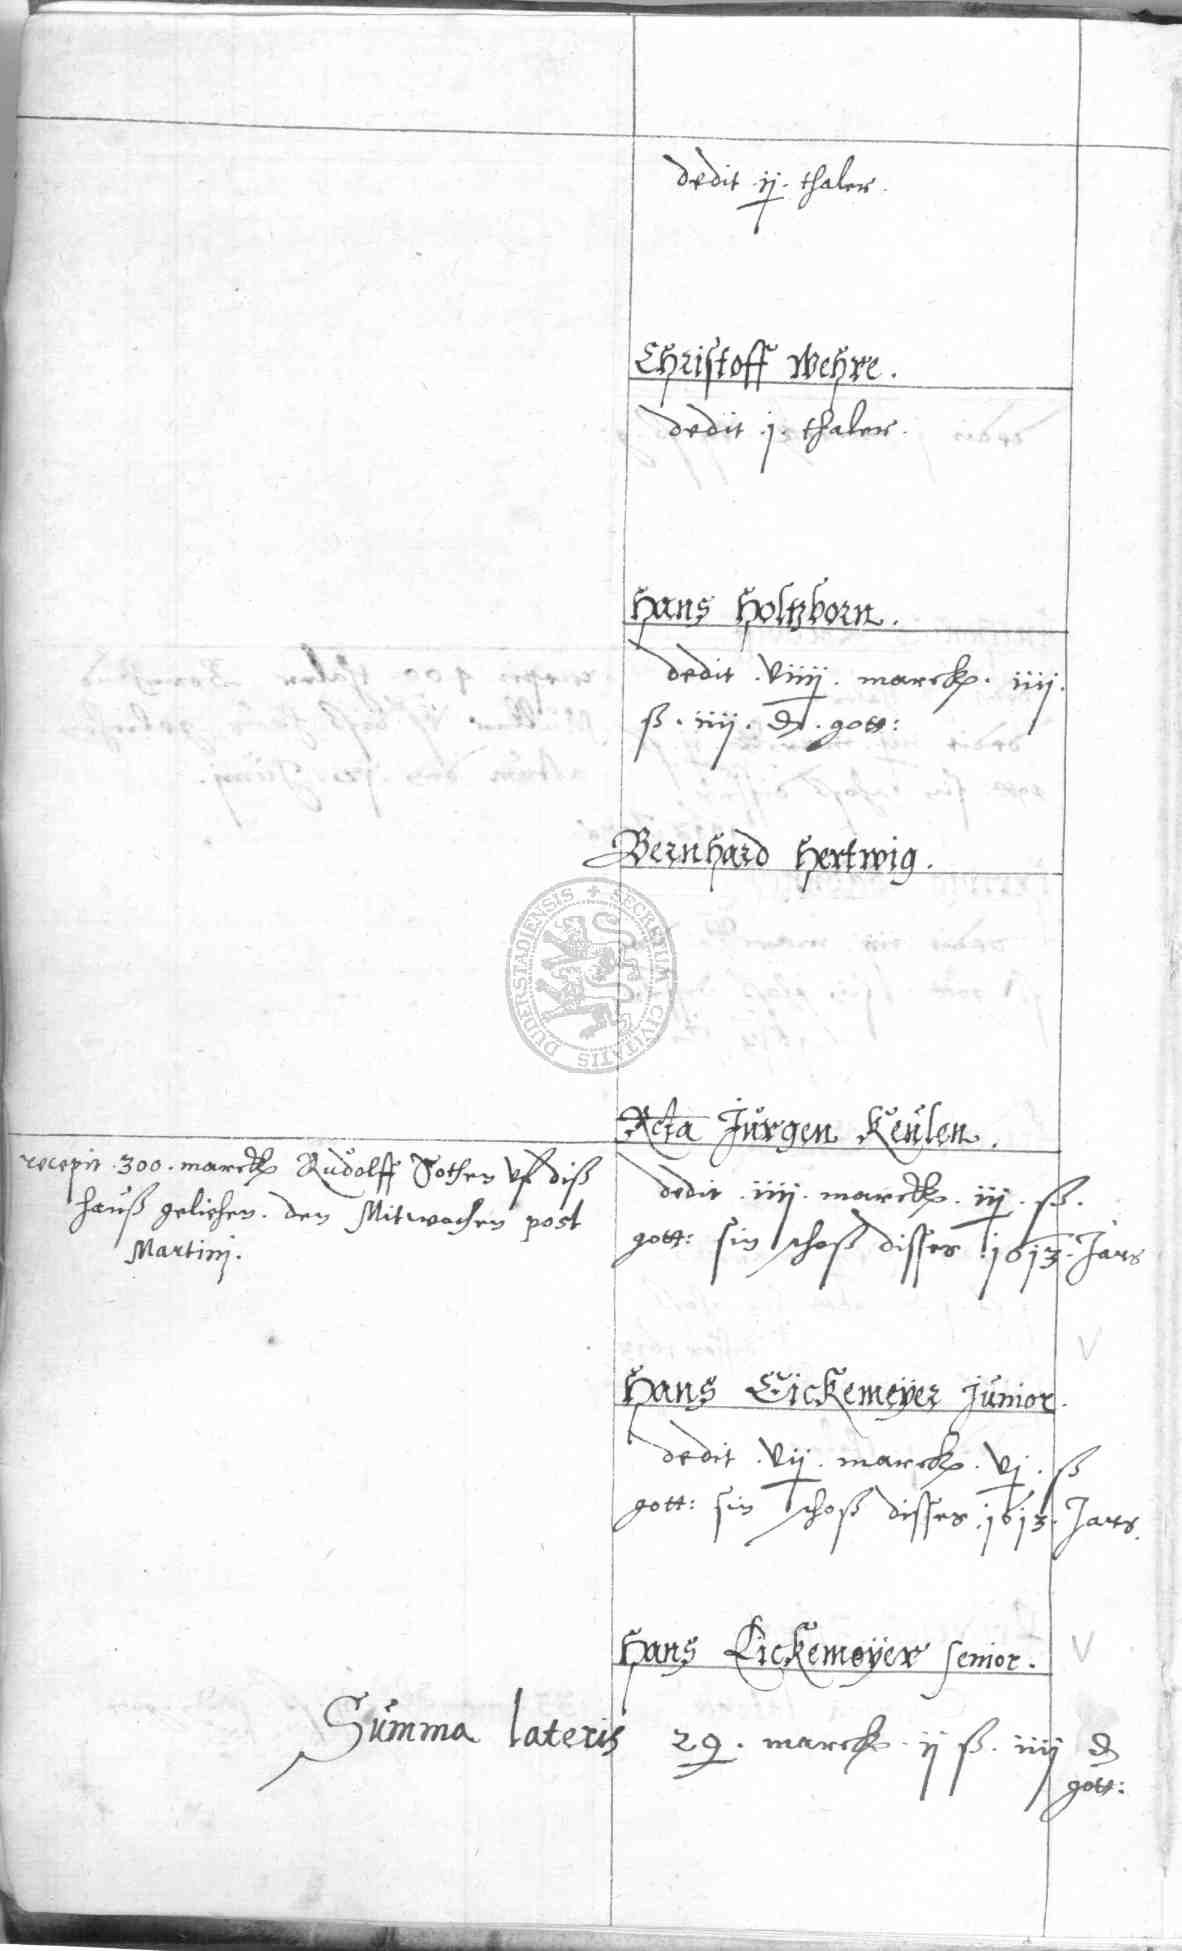 dedit .ij. thaler.
Christoff Wehre.
dedit .j. thaler.
Hans Holtzborn.
dedit .viiij. marck. iiij.
ß. iiij. d. gott:
Bernhard Hertwig.
DUDERSTADIENSIS + SECRETUM CIVITATIS
Relicta Jürgen Keülen.
recepit .300. marck Rudolff Tothen uf diß
hauß geliehen. den Mitwochen post
Martinj.
dedit .iiij. marck. iij. ß.
gott: sin schoß disses .1613. Jars
Hans Eickemeÿer junior.
dedit .vij. marck. vj. ß
gott: sin schoß disses .1613. Jars.
Hans Eickemeÿer senior.
Summa lateris 29. marck. ij ß. iiij d
gott: